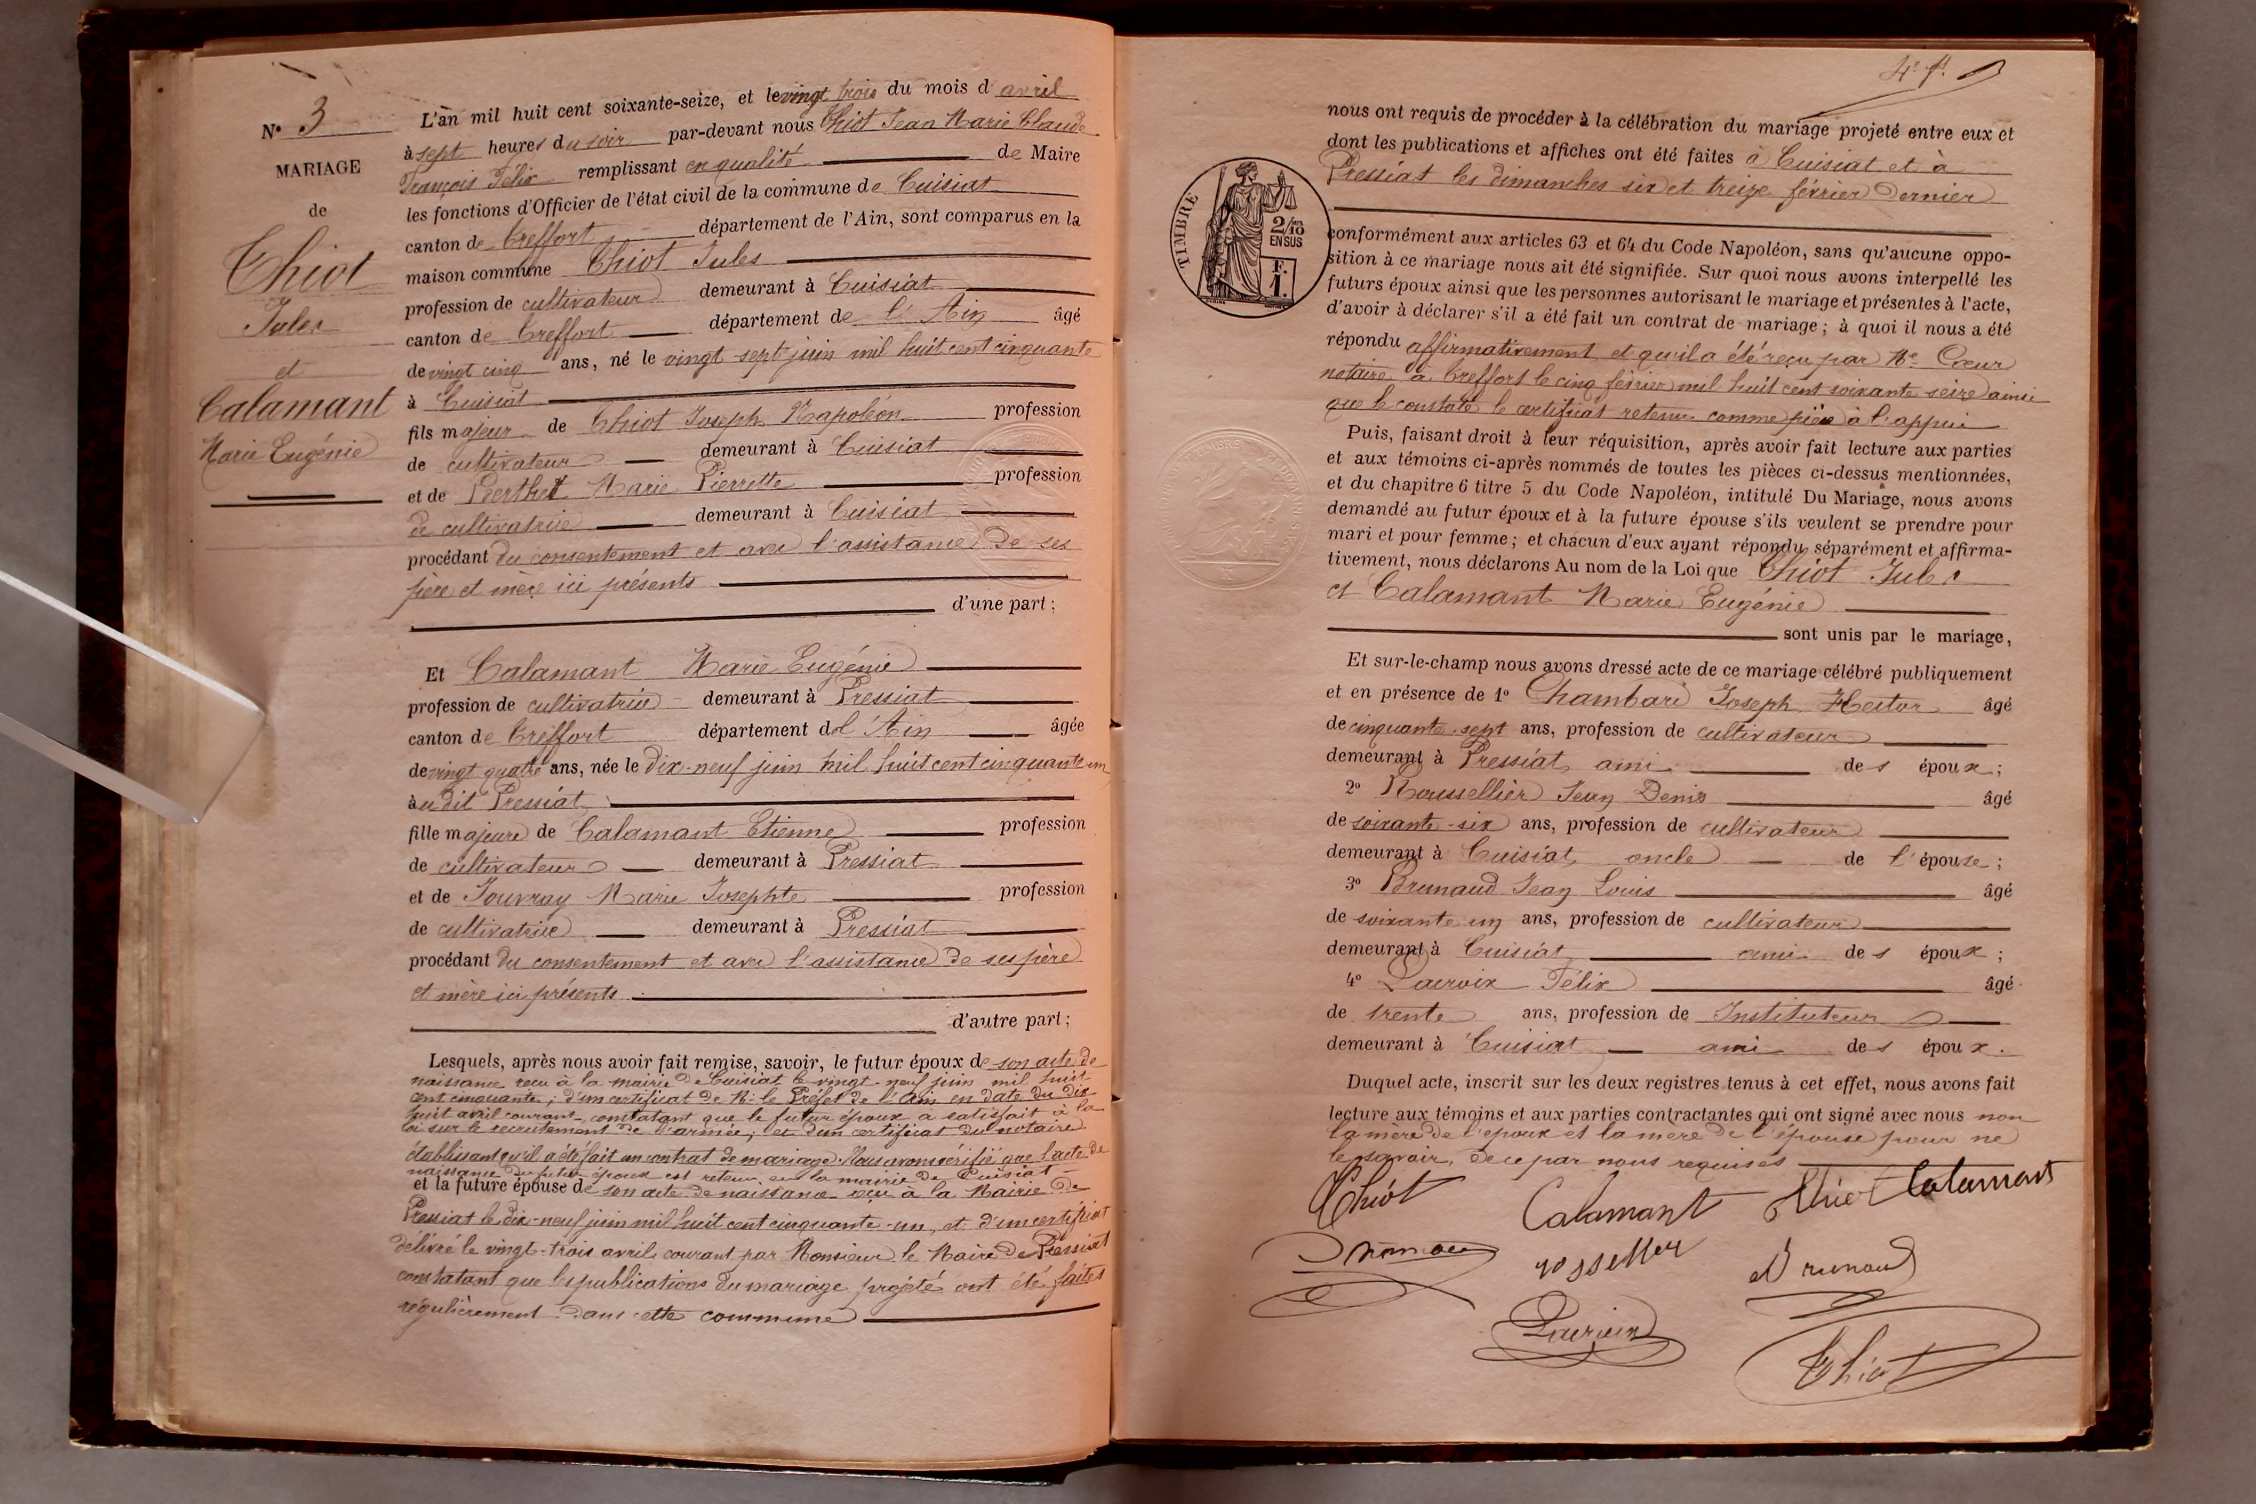 N° 3
MARIAGE
de
Thiot
Jules
et
Calamant
Marie Eugénie
L'an mil huit cent soixante-seize, et le vingt trois du mois d'avril
à sept heures du soir par-devant nous Thiot Jean Marie Claude
François Félix remplissant en qualité de Maire
les fonctions d'Officier de l'état civil de la commune de Cuisiat
canton de Treffort département de l'Ain, sont comparus en la
maison commune Thiot Jules
profession de cultivateur demeurant à Cuisiat
canton de Treffort département de l'Ain âgé
de vingt cinq ans, né le vingt sept juin mil huit cent cinquante
à Cuisiat
fils majeur de Thiot Joseph Napoléon profession
de cultivateur demeurant à Cuisiat
et de Berthet Marie Pierrette profession
de cultivatrice demeurant à Cuisiat
procédant du consentement et avec l'assistance de ses
père et mère ici présents
d'une part ;
Et Calamant Marie Eugénie
profession de cultivatrice demeurant à Pressiat
canton de Treffort département de l'Ain âgée
de vingt quatre ans, née le dix-neuf juin mil huit cent cinquante un
au dit Pressiat
fille majeure de Calamant Etienne profession
de cultivateur demeurant à Pressiat
et de Jouvray Marie Josephte profession
de cultivatrice demeurant à Pressiat
procédant du consentement et avec l'assistance de ses père
et mère ici présents
d'autre part ;
Lesquels, après nous avoir fait remise, savoir, le futur époux de son acte de
naissance reçu à la mairie de Cuisiat le vingt-neuf juin mil huit
cent cinquante ; d'un certificat de M. le Préfet de l'Ain en date du dix
huit avril courant constatant que le futur époux a satisfait à la
loi sur le recrutement de l'armée ; et d'un certificat du notaire
établissant qu'il a été fait un contrat de mariage. Nous avons vérifié que l'acte de
naissance du futur époux est retenu en la mairie de Cuisiat
et la future épouse de son acte de naissance reçu à la Mairie de
Pressiat le dix-neuf juin mil huit cent cinquante-un, et d'un certificat
délivré le vingt-trois avril courant par Monsieur le Maire de Pressiat
constatant que les publications du mariage projeté ont été faites
régulièrement dans cette commune
4e f.
nous ont requis de procéder à la célébration du mariage projeté entre eux et
dont les publications et affiches ont été faites à Cuisiat et à
Pressiat les dimanches six et treize février dernier
TIMBRE
2/10 EN SUS
F. 1.
conformément aux articles 63 et 64 du Code Napoléon, sans qu'aucune oppo-
sition à ce mariage nous ait été signifiée. Sur quoi nous avons interpellé les
futurs époux ainsi que les personnes autorisant le mariage et présentes à l'acte,
d'avoir à déclarer s'il a été fait un contrat de mariage ; à quoi il nous a été
répondu affirmativement et qu'il a été reçu par Me Cœur
notaire à Treffort le cinq février mil huit cent soixante seize ainsi
que le constate le certificat retenu comme pièce à l'appui
Puis, faisant droit à leur réquisition, après avoir fait lecture aux parties
et aux témoins ci-après nommés de toutes les pièces ci-dessus mentionnées,
et du chapitre 6 titre 5 du Code Napoléon, intitulé Du Mariage, nous avons
demandé au futur époux et à la future épouse s'ils veulent se prendre pour
mari et pour femme ; et chacun d'eux ayant répondu séparément et affirma-
tivement, nous déclarons Au nom de la Loi que Thiot Jules
et Calamant Marie Eugénie
sont unis par le mariage,
Et sur-le-champ nous avons dressé acte de ce mariage célébré publiquement
et en présence de 1° Chambard Joseph Hector âgé
de cinquante-sept ans, profession de cultivateur
demeurant à Pressiat ami des époux ;
2° Roussellier Jean Denis âgé
de soixante-six ans, profession de cultivateur
demeurant à Cuisiat oncle de l'épouse ;
3° Brunaud Jean Louis âgé
de soixante un ans, profession de cultivateur
demeurant à Cuisiat ami des époux ;
4° Lacroix Félix âgé
de trente ans, profession de Instituteur
demeurant à Cuisiat ami des époux.
Duquel acte, inscrit sur les deux registres tenus à cet effet, nous avons fait
lecture aux témoins et aux parties contractantes qui ont signé avec nous non
la mère de l'époux et la mère de l'épouse pour ne
le savoir, de ce par nous requises
Thiot Calamant Thiot Calamant
Brunaud
Lacroix
Thiot